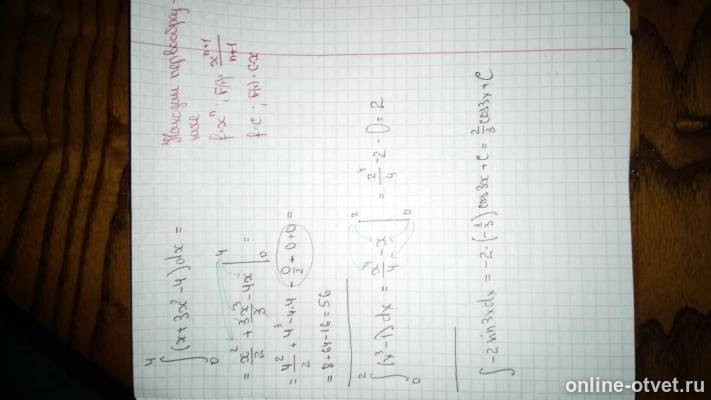 ∫₀⁴ (x + 3x² - 4) dx =
= x²/2 + 3x³/3 - 4x |₀⁴ =
= 4²/2 + 4³ - 4·4 - 0/2 + 0 + 0 =
= 8 + 64 - 16 = 56
∫₀² (x³ - 1) dx = x⁴/4 - x |₀² = 2⁴/4 - 2 - 0 = 2
∫ -2 sin 3x dx = -2·(-1/3) cos 3x + C = 2/3 cos 3x + C
Находим первообраз-
ные
f = xⁿ ; F(x) = xⁿ⁺¹/n+1
f = c ; F(x) = c·x
online-otvet.ru